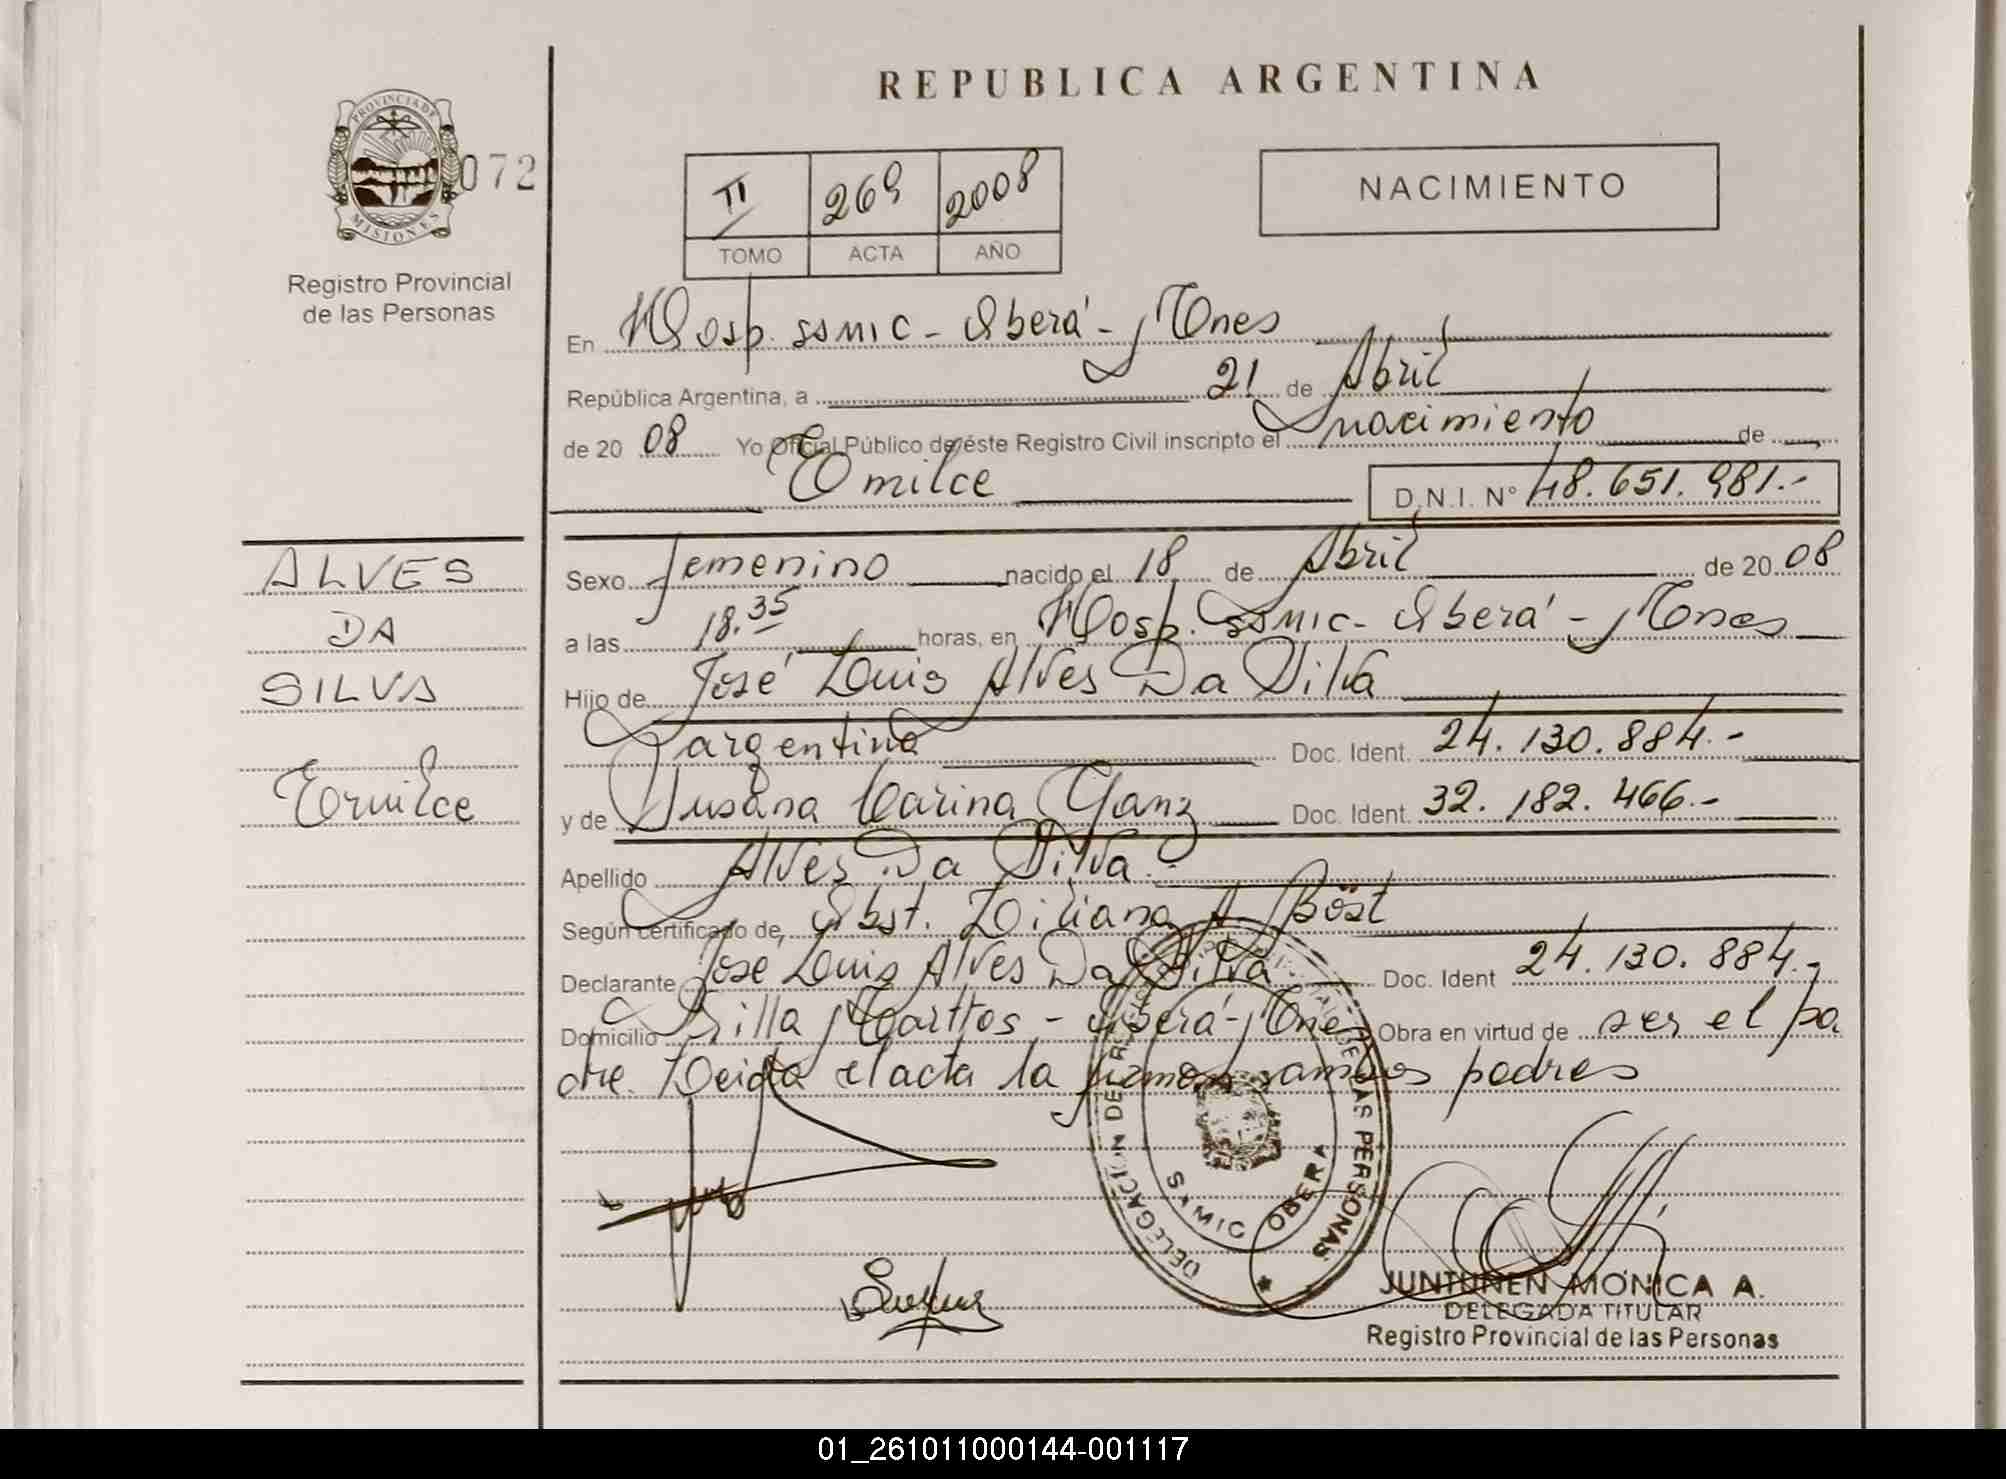 REPUBLICA ARGENTINA
PROVINCIA DE MISIONES
072
Registro Provincial
de las Personas
II 269 2008
TOMO ACTA AÑO
NACIMIENTO
En Hosp. ssmic - Oberá - Mnes
República Argentina, a 21 de Abril
de 20 08 Yo Oficial Público de éste Registro Civil inscripto el nacimiento de
Emilce D.N.I. N° 48.651.981.-
ALVES
DA
SILVA
Emilce
Sexo femenino nacido el 18 de Abril de 20 08
a las 18.35 horas, en Hosp. ssmic - Oberá - Mnes
Hijo de José Luis Alves Da Silva
argentina Doc. Ident. 24.130.884.-
y de Susana Carina Ganz Doc. Ident. 32.182.466.-
Apellido Alves Da Silva.-
Según certificado de, Obst. Liliana A. Böst
Declarante José Luis Alves Da Silva Doc. Ident 24.130.884.-
Domicilio Villa Martos - Oberá - Mnes Obra en virtud de ser el pa
dre. Leida el acta la firman ambos padres
DELEGACION DE REGISTRO PROVINCIAL DE LAS PERSONAS
SAMIC OBERA
JUNTUNEN MONICA A.
DELEGADA TITULAR
Registro Provincial de las Personas
01_261011000144-001117